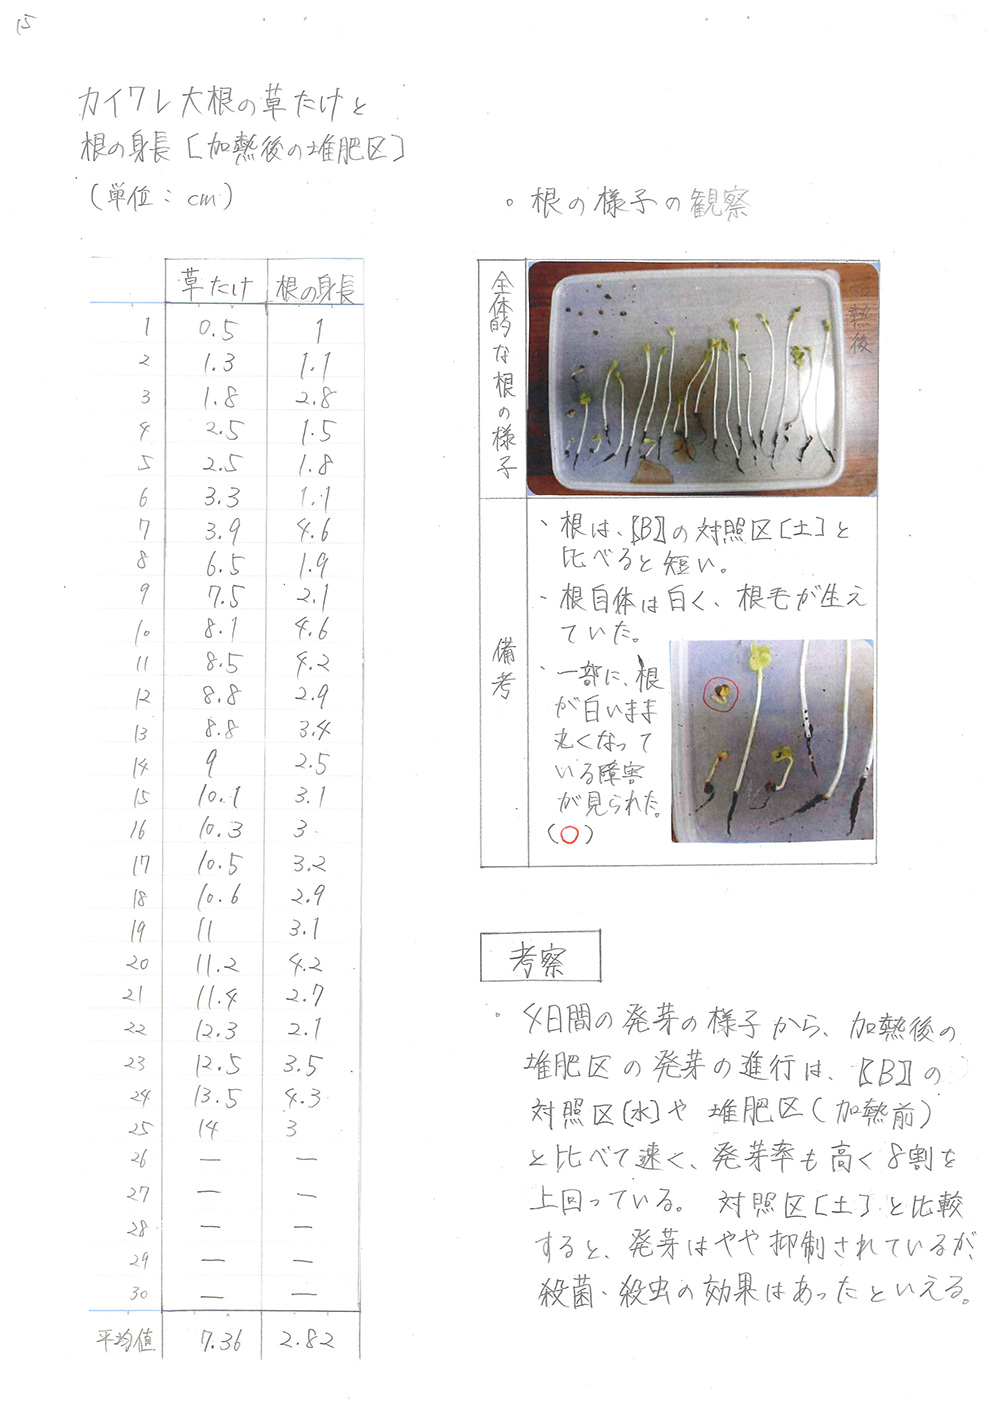 15
カイワレ大根の草たけと
根の身長[加熱後の堆肥区]
(単位:cm)
草たけ 根の身長
1 0.5 1
2 1.3 1.1
3 1.8 2.8
4 2.5 1.5
5 2.5 1.8
6 3.3 1.1
7 3.9 4.6
8 6.5 1.9
9 7.5 2.1
10 8.1 4.6
11 8.5 4.2
12 8.8 2.9
13 8.8 3.4
14 9 2.5
15 10.1 3.1
16 10.3 3
17 10.5 3.2
18 10.6 2.9
19 11 3.1
20 11.2 4.2
21 11.4 2.7
22 12.3 2.1
23 12.5 3.5
24 13.5 4.3
25 14 3
26 — —
27 — —
28 — —
29 — —
30 — —
平均値 7.36 2.82
。根の様子の観察
全体的な根の様子
熱後
備考
、根は、【B】の対照区[土]と
比べると短い。
、根自体は白く、根毛が生え
ていた。
、一部に、根
が白いまま
丸くなって
いる障害
が見られた。
(○)
考察
。4日間の発芽の様子から、加熱後の
堆肥区の発芽の進行は、【B】の
対照区[水]や堆肥区(加熱前)
と比べて速く、発芽率も高く8割を
上回っている。対照区[土]と比較
すると、発芽はやや抑制されているが、
殺菌・殺虫の効果はあったといえる。